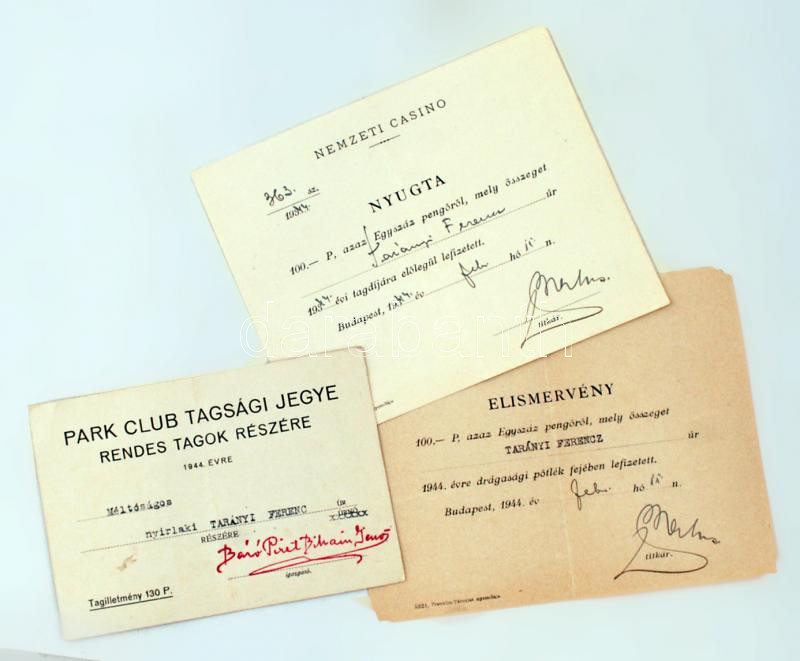 NEMZETI CASINO
363. sz.
1944.
NYUGTA
100.— P, azaz Egyszáz pengőről, mely összeget
Tarányi Ferenc úr
1944. évi tagdíjára előlegül lefizetett.
Budapest, 1944. év feb. hó n.
titkár.
ELISMERVÉNY
100.— P, azaz Egyszáz pengőről, mely összeget
TARÁNYI FERENCZ úr
1944. évre drágasági pótlék fejében lefizetett.
Budapest, 1944. év feb. hó n.
titkár.
Franklin-Társulat nyomdája
PARK CLUB TAGSÁGI JEGYE
RENDES TAGOK RÉSZÉRE
1944. ÉVRE
Méltóságos
nyirlaki TARÁNYI FERENC úr
RÉSZÉRE
Báró Piret Bihain Jenő
igazgató.
Tagilletmény 130 P.
darabanth